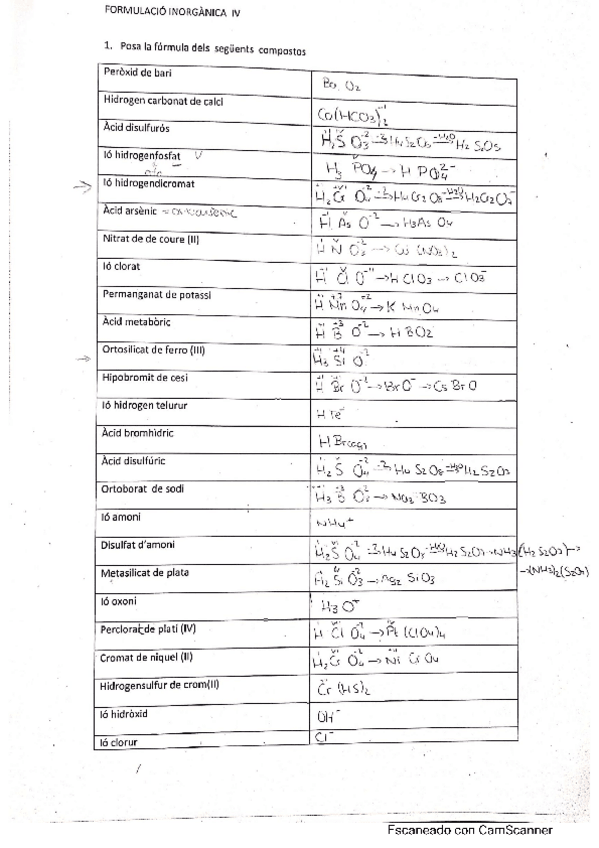 FORMULACIÓ INORGÀNICA IV
1. Posa la fórmula dels següents compostos
Peròxid de bari Ba O₂
Hidrogen carbonat de calci Ca(HCO₃)₂
Àcid disulfurós H₂S O₃ → H₄ S₂O₆ → H₂ S₂O₅
Ió hidrogenfosfat H₃ PO₄ → H PO₄²⁻
Ió hidrogendicromat H₂Cr O₄ → H₄ Cr₂ O₈ → H₂Cr₂O₇
Àcid arsènic H As O⁻² → H₃As O₄
Nitrat de de coure (II) H N O₃ → Cu (NO₃)₂
Ió clorat H Cl O → H ClO₃ → ClO₃⁻
Permanganat de potassi H Mn O₄ → K MnO₄
Àcid metabòric H B O⁻² → H BO₂
Ortosilicat de ferro (III) H₃ Si O⁻²
Hipobromit de cesi H Br O⁻² → BrO⁻ → Cs BrO
Ió hidrogen telurur H Te⁻
Àcid bromhídric H Br(aq)
Àcid disulfúric H₂ S O₄ → H₄ S₂ O₈ → H₂ S₂O₇
Ortoborat de sodi H₃ B O₃ → Na₂ BO₃
Ió amoni NH₄⁺
Disulfat d'amoni H₂S O₄ → H₄ S₂O₈ → H₂ S₂O₇ → NH₃ (H₂ S₂O₇) →
→ (NH₃)₂(S₂O₇)
Metasilicat de plata H₂ Si O₃ → Ag₂ SiO₃
Ió oxoni H₃ O⁺
Perclorat de platí (IV) H Cl O₄ → Pt (ClO₄)₄
Cromat de níquel (II) H₂Cr O₄ → Ni CrO₄
Hidrogensulfur de crom(II) Cr (HS)₂
Ió hidròxid OH⁻
Ió clorur Cl⁻
Escaneado con CamScanner